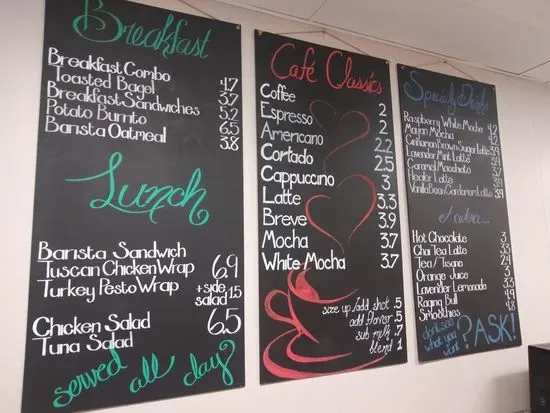 Breakfast
Breakfast Combo 4.7
Toasted Bagel 3.7
Breakfast Sandwiches 5.2
Potato Burrito 6.5
Barista Oatmeal 3.8
Lunch
Barista Sandwich
Tuscan Chicken Wrap 6.9
Turkey Pesto Wrap + side
salad 1.5
Chicken Salad 6.5
Tuna Salad
served all day
Café Classics
Coffee 2
Espresso 2
Americano 2.2
Cortado 2.5
Cappuccino 3
Latte 3.3
Breve 3.9
Mocha 3.7
White Mocha 3.7
size up/add shot .5
add flavor .5
sub milk .7
blend 1
Specialty Drinks
Raspberry White Mocha 4.2
Mayan Mocha 4.2
Cinnamon Brown Sugar Latte 3.9
Lavender Mint Latte 3.9
Caramel Macchiato 3.7
Heafer Latte 3.9
Vanilla Bean Cardamom Latte 3.9
et cetera...
Hot Chocolate 3
Chai Tea Latte 3.3
Tea / Tisane 2.4
Orange Juice 3
Lavender Lemonade 3.3
Raging Bull 4.9
Smoothies 4.4
don't see
what you
want? ASK!